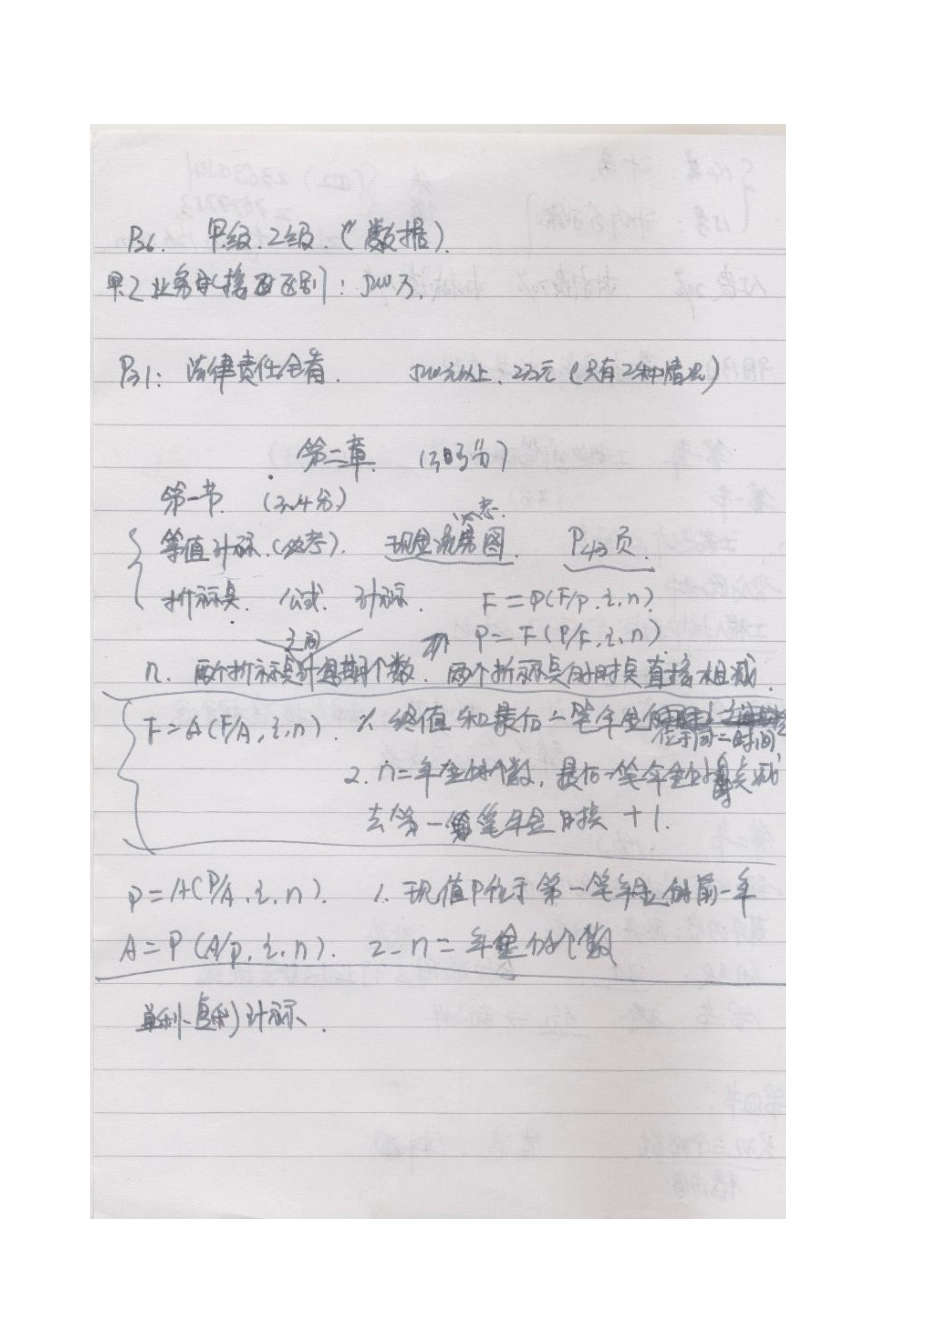 P26. 甲级、乙级.(数据).
甲乙业务承接范围区别:5000万.
P31: 法律责任全看. 5000元以上、2万元(只有2种情况)
第二章.
第一节. (3.4分)
必考.
等值计算.(必考). 现金流量图. P43页.
折算点. 公式. 计算. F=P(F/P.i.n).
P=F(P/F,i,n)
之间
n. 两个折算点计息期个数. 两个折算点的时点直接相减.
F=A(F/A,i,n). 1. 终值和最后一笔年金
位于同一时间
2. n=年金的个数,最后一笔年金时点减
去第一笔年金时接+1.
P=A(P/A.i.n). 1. 现值P位于第一笔年金的前一年
A=P(A/P,i.n). 2- n=年金的个数
单利、复利)计算、.